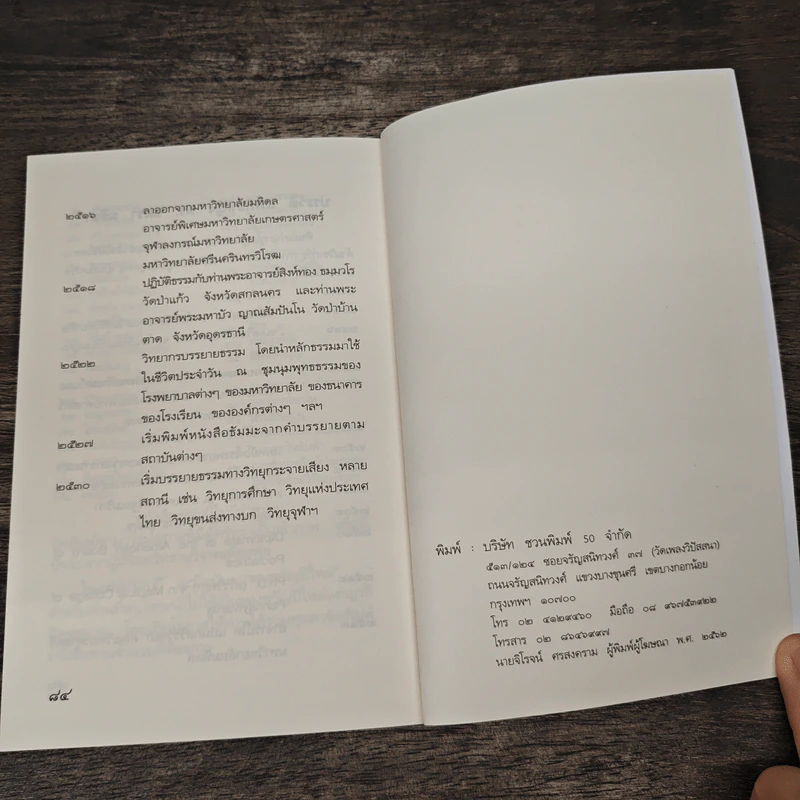 ๒๕๑๖ ลาออกจากมหาวิทยาลัยมหิดล
อาจารย์พิเศษมหาวิทยาลัยเกษตรศาสตร์
จุฬาลงกรณ์มหาวิทยาลัย
มหาวิทยาลัยศรีนครินทรวิโรฒ
๒๕๑๘ ปฏิบัติธรรมกับท่านพระอาจารย์สิงห์ทอง ธมฺมวโร
วัดป่าแก้ว จังหวัดสกลนคร และท่านพระ
อาจารย์พระมหาบัว ญาณสัมปันโน วัดป่าบ้าน
ตาด จังหวัดอุดรธานี
๒๕๒๒ วิทยากรบรรยายธรรม โดยนำหลักธรรมมาใช้
ในชีวิตประจำวัน ณ ชุมนุมพุทธธรรมของ
โรงพยาบาลต่างๆ ของมหาวิทยาลัย ของธนาคาร
ของโรงเรียน ขององค์กรต่างๆ ฯลฯ
๒๕๒๗ เริ่มพิมพ์หนังสือธัมมะจากคำบรรยายตาม
สถาบันต่างๆ
๒๕๓๐ เริ่มบรรยายธรรมทางวิทยุกระจายเสียง หลาย
สถานี เช่น วิทยุการศึกษา วิทยุแห่งประเทศ
ไทย วิทยุขนส่งทางบก วิทยุจุฬาฯ
๘๔
พิมพ์ : บริษัท ชวนพิมพ์ 50 จำกัด
๕๑๓/๑๒๔ ซอยจรัญสนิทวงศ์ ๓๗ (วัดเพลงวิปัสสนา)
ถนนจรัญสนิทวงศ์ แขวงบางขุนศรี เขตบางกอกน้อย
กรุงเทพฯ ๑๐๗๐๐
โทร ๐๒ ๔๑๒๙๔๖๐ มือถือ ๐๘ ๙๖๗๕๓๙๒๒
โทรสาร ๐๒ ๘๖๔๖๙๙๗
นายจิโรจน์ ศรสงคราม ผู้พิมพ์ผู้โฆษณา พ.ศ. ๒๕๖๒